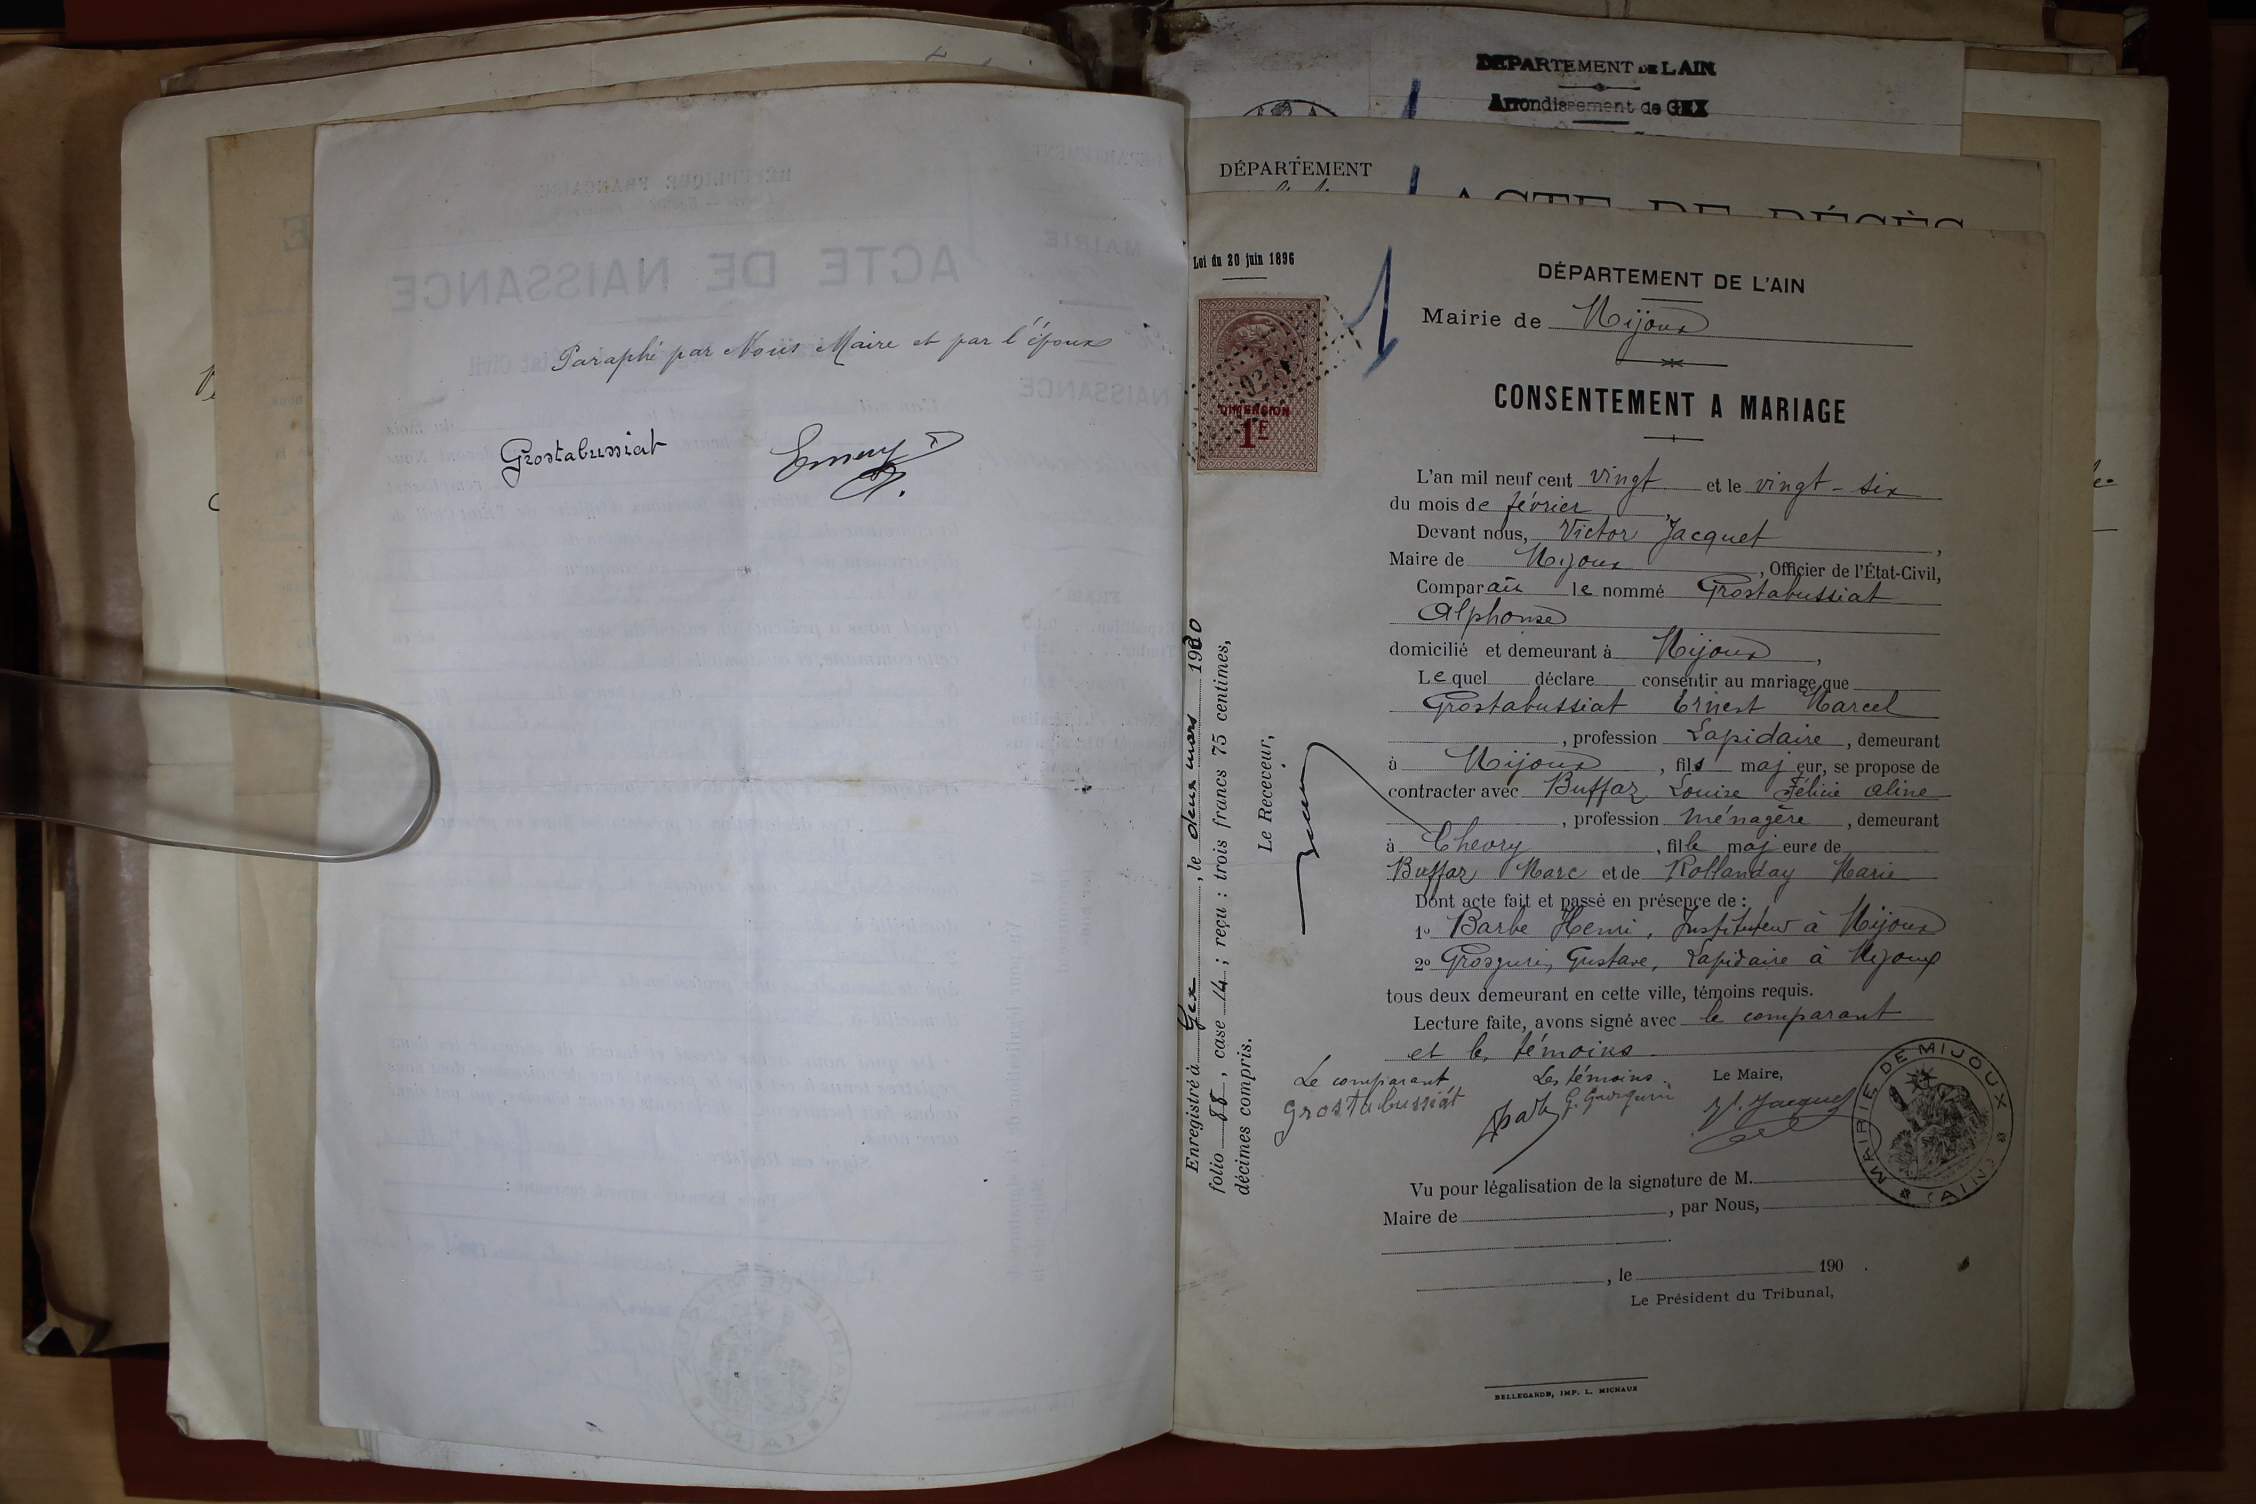 Paraphé par Nous Maire et par l'époux
Grostabussiat
DÉPARTEMENT DE L'AIN
Arrondissement de GEX
DÉPARTEMENT
ACTE DE DÉCÈS
Loi du 20 juin 1896
1
DIMENSION
1F
DÉPARTEMENT DE L'AIN
Mairie de Mijoux
CONSENTEMENT A MARIAGE
L'an mil neuf cent vingt et le vingt-six
du mois de février,
Devant nous, Victor Jacquet,
Maire de Mijoux, Officier de l'État-Civil,
Comparait le nommé Grostabussiat
Alphonse
domicilié et demeurant à Mijoux,
Lequel déclare consentir au mariage que
Grostabussiat Ernest Marcel
, profession Lapidaire, demeurant
à Mijoux, fils majeur, se propose de
contracter avec Buffaz Louise Félicie Aline
, profession ménagère, demeurant
à Chevry, fille majeure de
Buffaz Marc et de Rollanday Marie
Dont acte fait et passé en présence de :
1º Barbe Henri, Instituteur à Mijoux
2º Grosgurin, Gustave, Lapidaire à Mijoux
tous deux demeurant en cette ville, témoins requis.
Lecture faite, avons signé avec le comparant
et les témoins
Le comparant
Grostabussiat
Les témoins
G. Grosgurin
Le Maire,
Vr. Jacquet
MAIRIE DE MIJOUX (AIN)
Vu pour légalisation de la signature de M.
Maire de , par Nous,
, le 190 .
Le Président du Tribunal,
BELLEGARDE, IMP. L. MICHAUX
Enregistré à Gex, le deux mars 1920
folio 88, case 14; reçu : trois francs 75 centimes,
décimes compris.
Le Receveur,